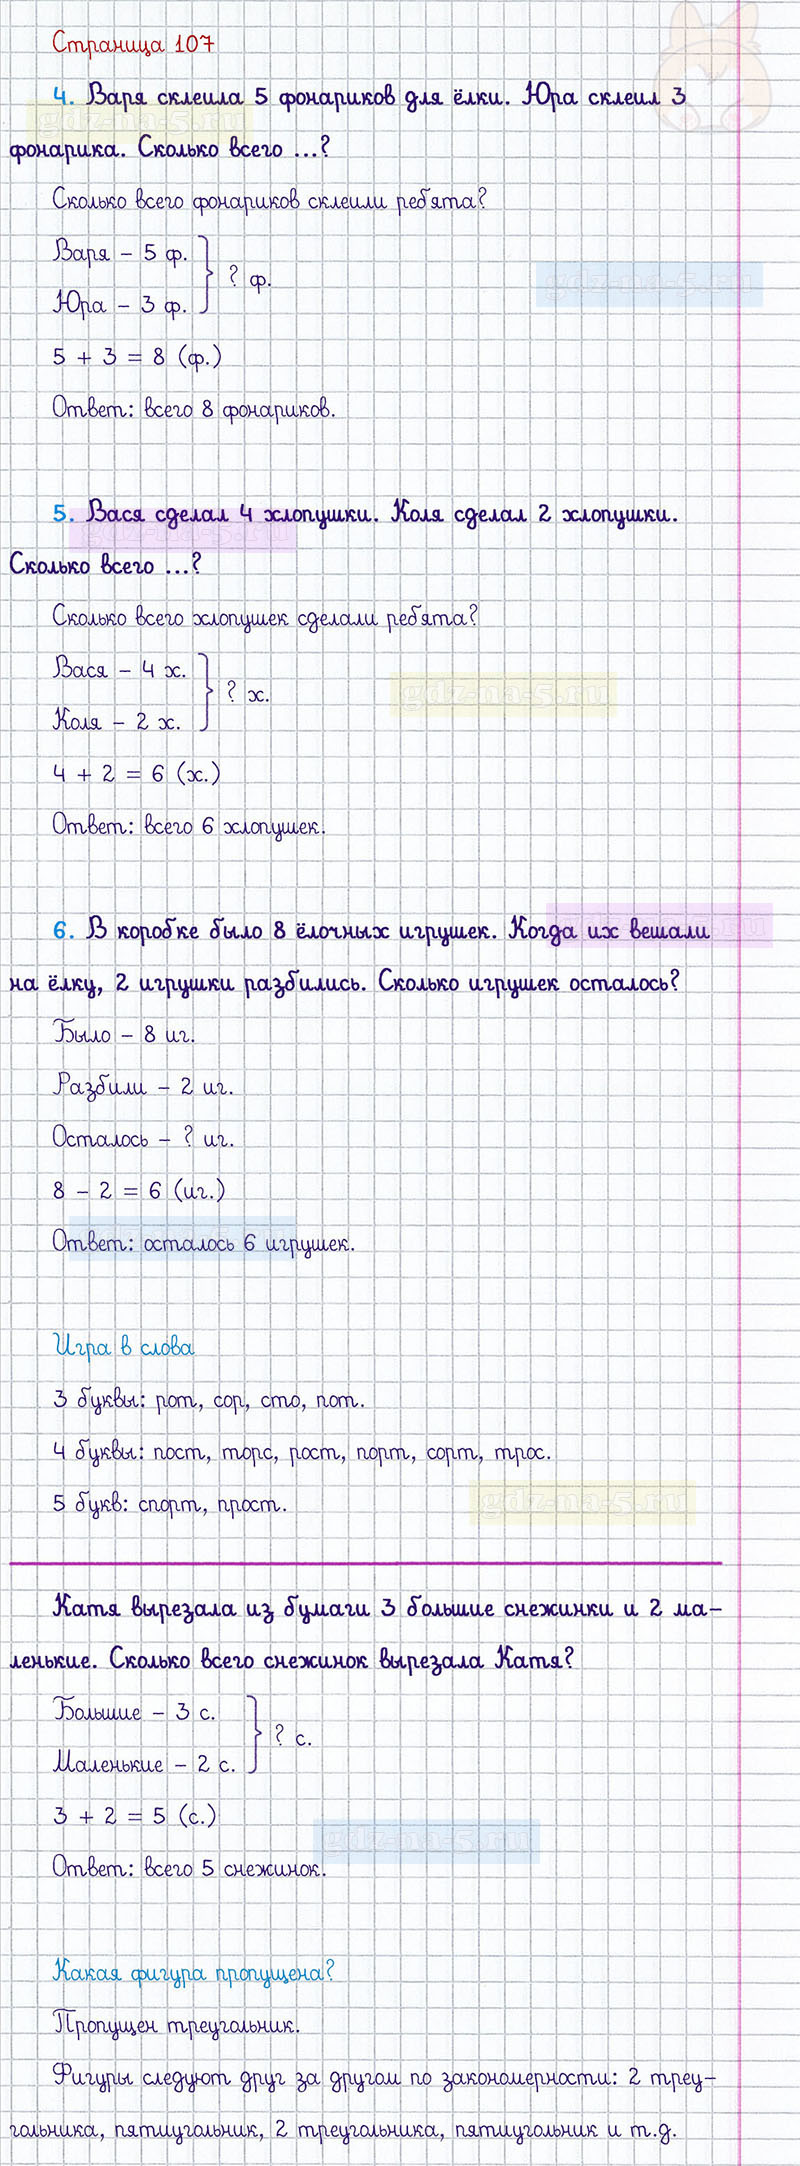 Страница 107
4. Варя склеила 5 фонариков для ёлки. Юра склеил 3
фонарика. Сколько всего ...?
gdz-na-5.ru
Сколько всего фонариков склеили ребята?
Варя – 5 ф.
? ф.
gdz-na-5.ru
Юра – 3 ф.
5 + 3 = 8 (ф.)
Ответ: всего 8 фонариков.
5. Вася сделал 4 хлопушки. Коля сделал 2 хлопушки.
gdz-na-5.ru
Сколько всего ...?
Сколько всего хлопушек сделали ребята?
Вася – 4 х.
? х.
gdz-na-5.ru
Коля – 2 х.
4 + 2 = 6 (х.)
Ответ: всего 6 хлопушек.
6. В коробке было 8 ёлочных игрушек. Когда их вешали
на ёлку, 2 игрушки разбились. Сколько игрушек осталось?
Было – 8 иг.
Разбили – 2 иг.
Осталось – ? иг.
8 – 2 = 6 (иг.)
Ответ: осталось 6 игрушек.
Игра в слова
3 буквы: рот, сор, сто, пот.
4 буквы: пост, торс, рост, порт, сорт, трос.
5 букв: спорт, прост.
gdz-na-5.ru
Катя вырезала из бумаги 3 большие снежинки и 2 ма-
ленькие. Сколько всего снежинок вырезала Катя?
Большие – 3 с.
? с.
Маленькие – 2 с.
3 + 2 = 5 (с.)
gdz-na-5.ru
Ответ: всего 5 снежинок.
Какая фигура пропущена?
Пропущен треугольник.
Фигуры следуют друг за другом по закономерности: 2 треу-
гольника, пятиугольник, 2 треугольника, пятиугольник и т.д.